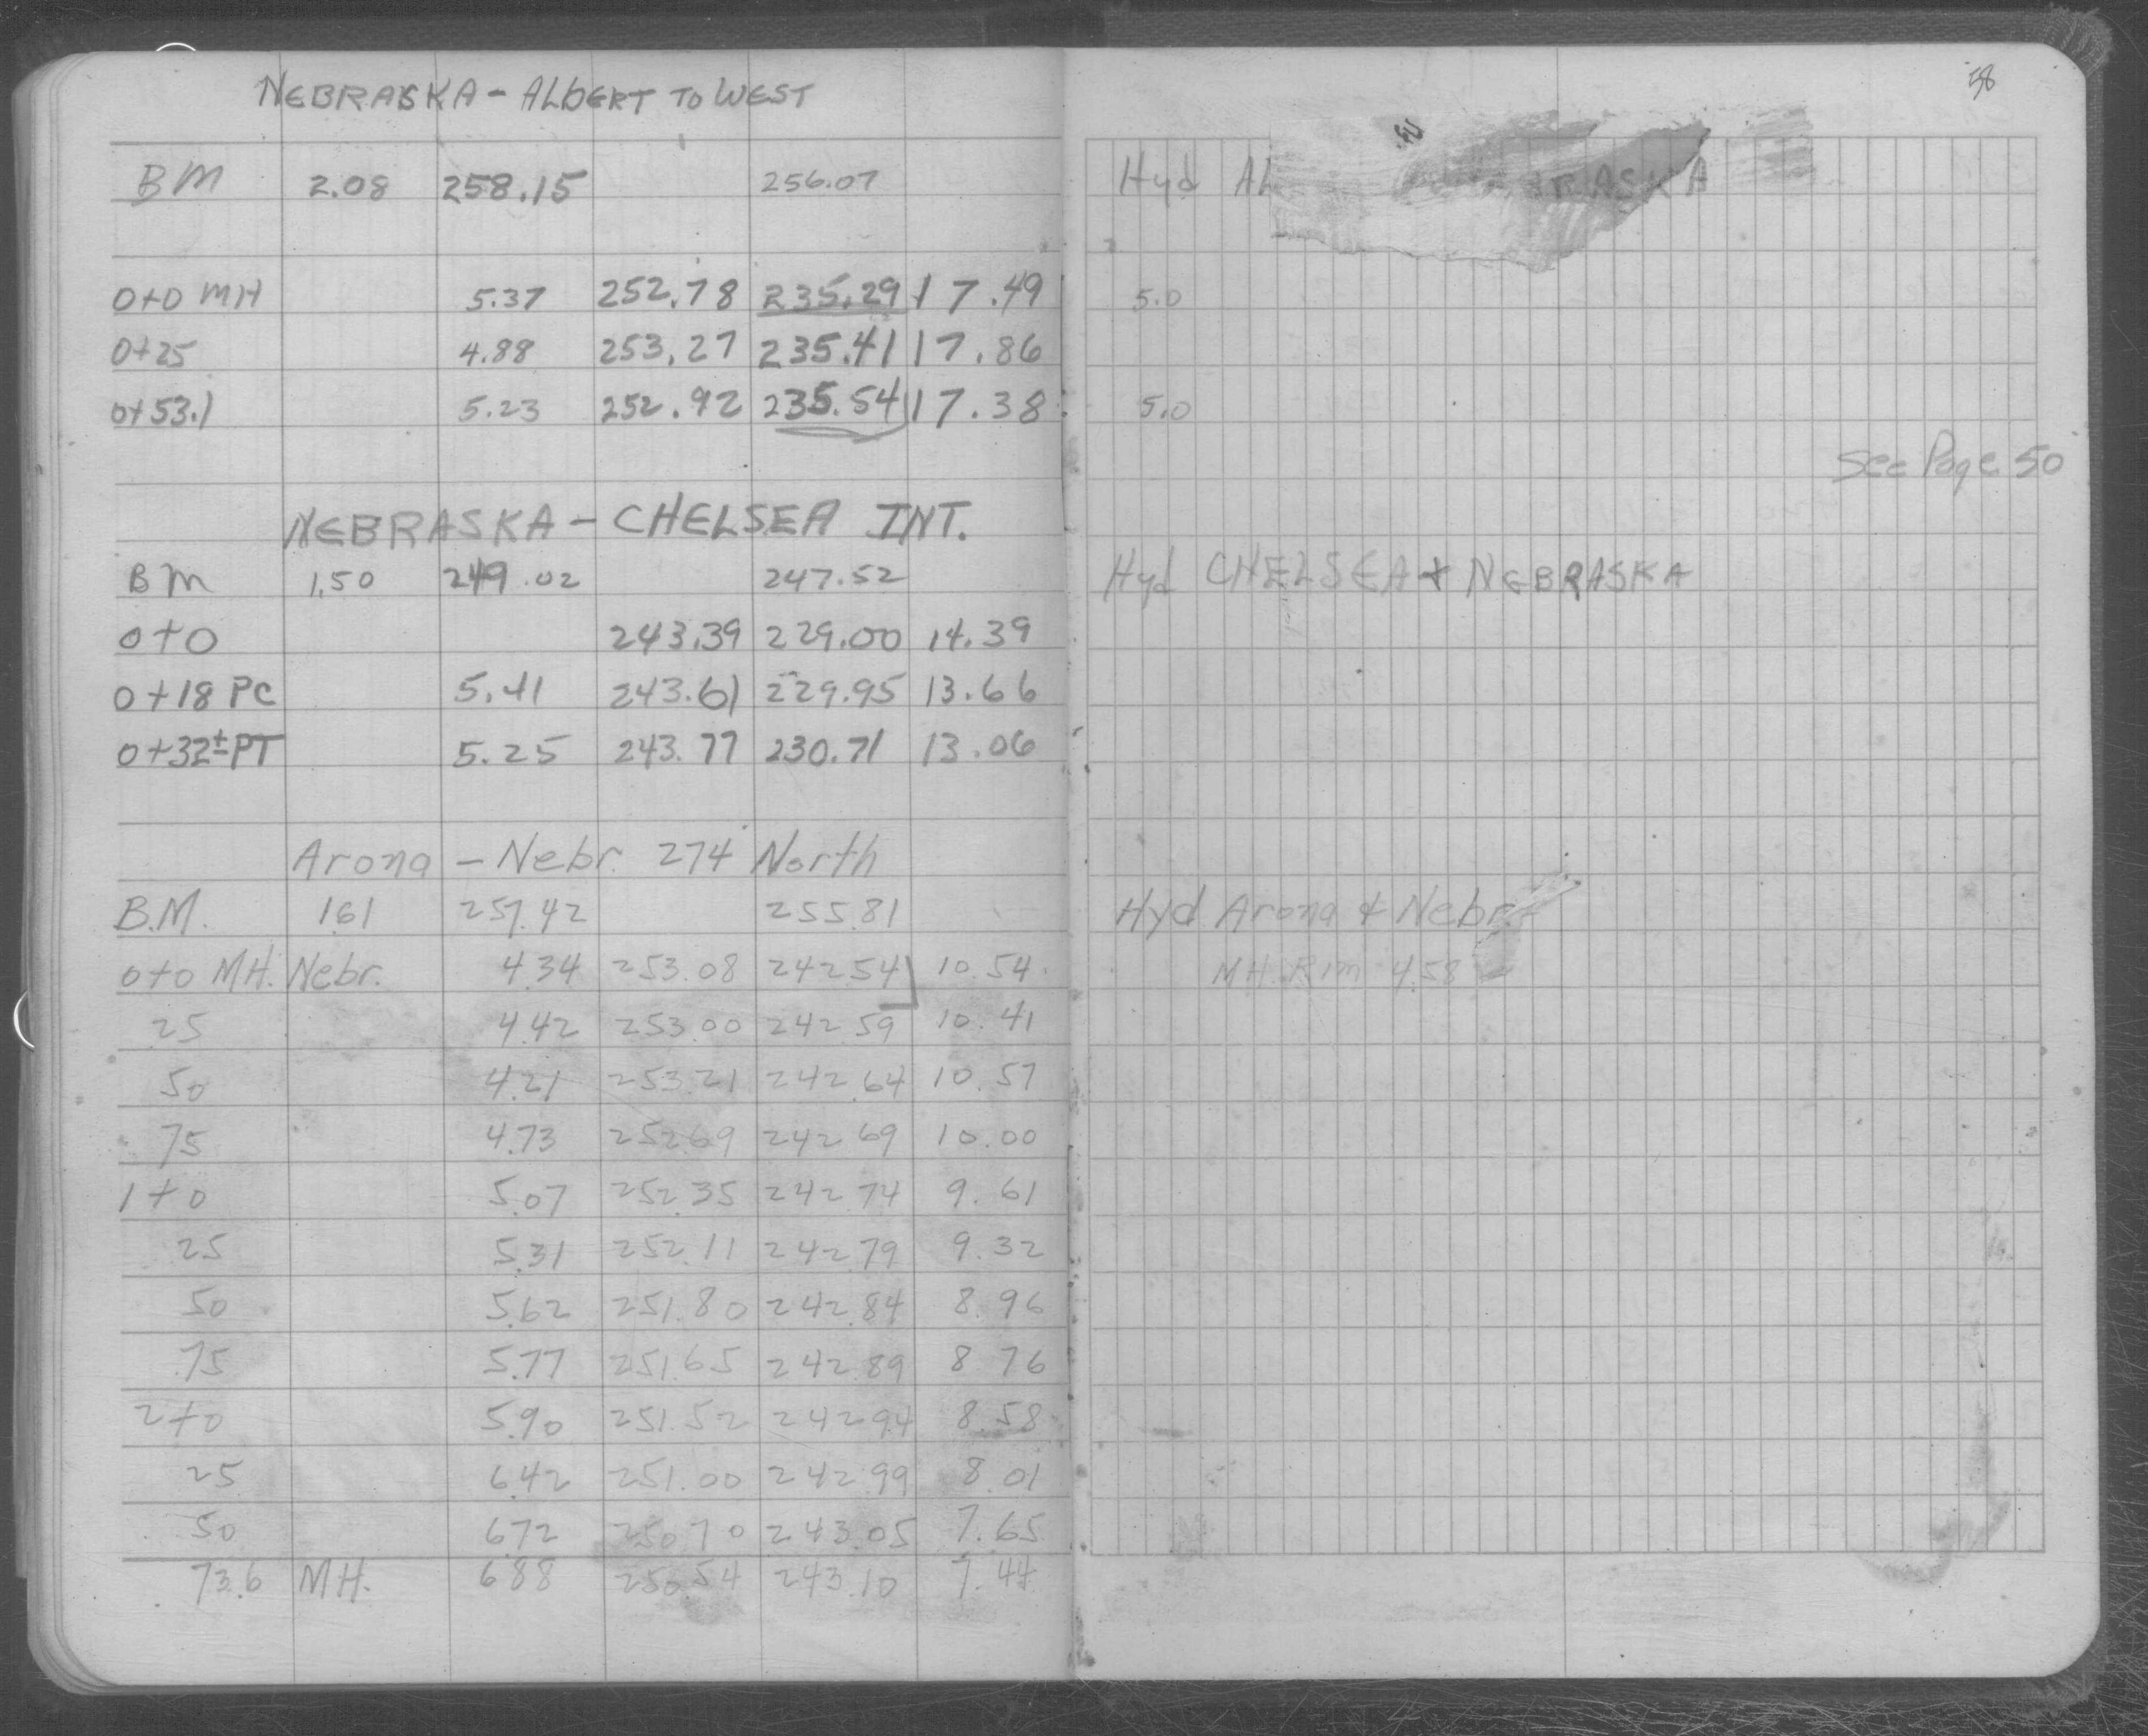 NEBRASKA - ALBERT TO WEST
BM 2.08 258.15 256.07
0+0 MH 5.37 252.78 235.29 17.49
0+25 4.88 253.27 235.41 17.86
0+53.1 5.23 252.92 235.54 17.38
NEBRASKA - CHELSEA INT.
BM 1.50 249.02 247.52
0+0 243.39 229.00 14.39
0+18 PC 5.41 243.61 229.95 13.66
0+32± PT 5.25 243.77 230.71 13.06
Arona - Nebr. 274 North
B.M. 1.61 257.42 255.81
0+0 MH. Nebr. 4.34 253.08 242.54 10.54
25 4.42 253.00 242.59 10.41
50 4.21 253.21 242.64 10.57
75 4.73 252.69 242.69 10.00
1+0 5.07 252.35 242.74 9.61
25 5.31 252.11 242.79 9.32
50 5.62 251.80 242.84 8.96
75 5.77 251.65 242.89 8.76
2+0 5.90 251.52 242.94 8.58
25 6.42 251.00 242.99 8.01
50 6.72 250.70 243.05 7.65
73.6 MH. 6.88 250.54 243.10 7.44
58
Hyd
5.0
5.0
See Page 50
Hyd CHELSEA + NEBRASKA
Hyd Arona & Nebr.
MH. Rim 4.58